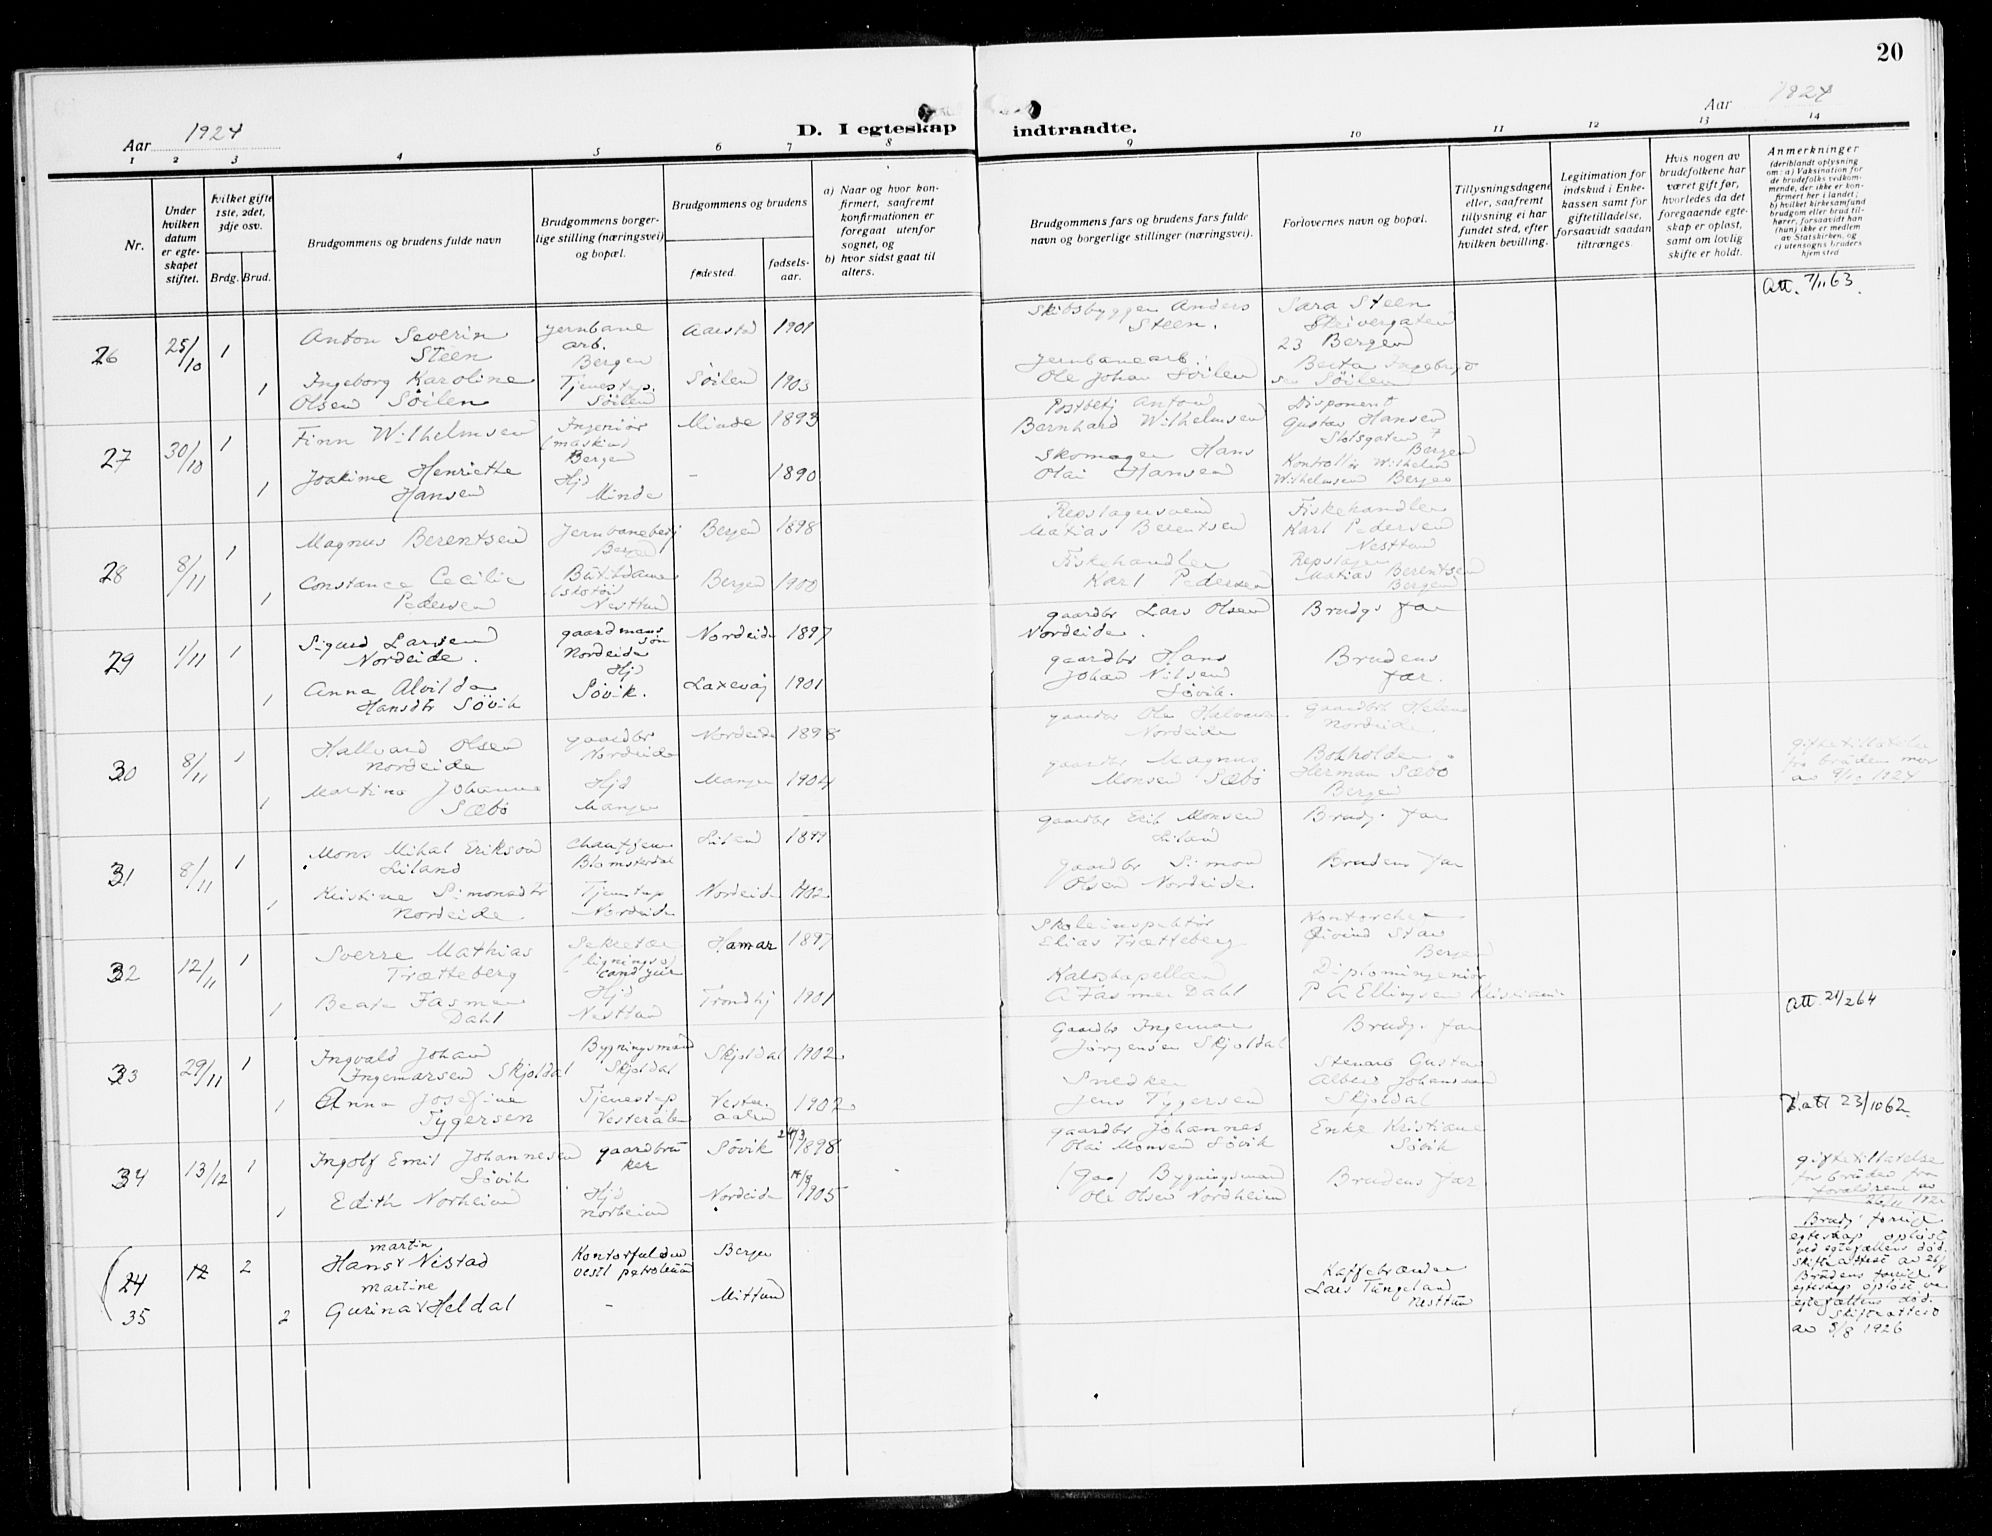 20
Aar 1924
D. I egteskap indtraadte.
Aar 1924
1 2 3 4 5 6 7 8 9 10 11 12 13 14
Nr.
Under hvilken datum er egteskapet stiftet.
hvilket gifte 1ste, 2det, 3dje osv.
Brdg. Brud.
Brudgommens og brudens fulde navn
Brudgommens borgerlige stilling (næringsvei) og bopæl.
Brudgommens og brudens
fødested.
fødselsaar.
a) Naar og hvor konfirmert, saafremt konfirmationen er foregaat utenfor sognet, og
b) hvor sidst gaat til alters.
Brudgommens fars og brudens fars fulde navn og borgerlige stillinger (næringsvei).
Forlovernes navn og bopæl.
Tillysningsdagene eller, saafremt tillysning ei har fundet sted, efter hvilken bevilling.
Legitimation for indskud i Enkekassen samt for giftetilladelse, forsaavidt saadan tiltrænges.
Hvis nogen av brudefolkene har været gift før, hvorledes da det foregaaende egteskap er opløst, samt om lovlig skifte er holdt.
Anmerkninger
(deriblandt oplysning om: a) Vaksination for de brudefolks vedkommende, der ikke er konfirmert her i landet; b) hvilket kirkesamfund brudgom eller brud tilhører, forsaavidt han (hun) ikke er medlem av Statskirken, og c) utensogns bruders hjemsted
Att. 7/11 63.
26 25/10 1 Anton Severin Steen Jernbane arb. Bergen Aarstad 1901 Skibsbygger Anders Steen. Sara Steen 23 Bergen
1 Ingeborg Karoline Olsen Söilen Tjenestep. Söilen Söilen 1903 Jernbanearb. Ole Johan Söilen Berta Ingebrigtsen Söilen
27 30/10 1 Finn Wilhelmsen Ingeniör (maskin) Bergen Minde 1893 Postbetj Anton Bernhard Wilhelmsen Disponent Gustav Hansen Slotsgaten 7 Bergen
1 Joakime Henriette Hansen Hjd Minde - 1890 Skomager Hans Olai Hansen Kontrollör Wilhelm Wilhelmsen Bergen
28 8/11 1 Magnus Berentsen Jernbanebetj Bergen Bergen 1898 Repslagersvend Matias Berentsen Fiskehandler Karl Pedersen Nesttun
1 Constance Cecilie Pedersen Butikdame (skotöi Nesttun Bergen 1900 Fiskehandler Karl Pedersen Repslager Matias Berentsen Bergen
29 1/11 1 Sigurd Larsen Nordeide. gaardmans sön Nordeide Nordeide 1897 gaardbr Lars Olsen Nordeide. Brudgs far
1 Anna Alvilda Hansdtr Sövik Hjd Sövik. Laxevaag 1901 gaardbr Hans Johan Nilsen Sövik. Brudens far.
30 8/11 1 Hallvard Olsen Nordeide gaardbr Nordeide Nordeide 1898 gaardbr Ole Halvorsen Nordeide gaardbr Nordeide.
1 Martina Johanna Sæbö Hjd Manger Manger 1904 gaardbr Magnus Monsen Sæbö Bokholder Herman Sæbö Bergen giftetillatelse fra brudens mor av 1924
31 8/11 1 Mons Mikal Eriksen Liland Chauffeur Blomsterdal Liland gaardbr Erik Monsen Liland Brudg. far
1 Kristine Simonsdtr Nordeide. Tjenestep Nordeide Nordeide 1902 gaardbr Simon Olsen Nordeide. Brudens far
32 12/11 1 Sverre Mathias Trætteberg Sekretær (lignings) cand jur Hamar 1897 Skoleinspektör Elias Trætteberg Kontorchef Öivind Bergen
1 Beate Fasmer Dahl Hjd Nesttun Trondhj 1901 Kaldskapellan A Fasmer Dahl Diplomingeniör P A Ellingsen Kristiania
Att. 21/2 64
33 29/11 1 Ingvald Johan Ingemarsen Skjoldal Bygningsmand Skjoldal Skjoldal 1902 Gaardbr Ingemar Jörgensen Skjoldal Brudg. far
1 Anna Josefine Tygersen Tjenestep Vesterålen Vesteraalen 1902 Snedker Jens Tygersen Stenarb Gustav Albert Johannesen Skjoldal
D.att 23/10 62.
34 13/12 1 Ingolf Emil Johannesen Sövik gaardbruker Sövik 24/3 1898 gaardbr Johannes Olai Monsen Sövik Enke Kristiane Sövik
1 Edith Norheim Hjd Norheim Nordeide 1905 (Gaa) Bygningsmand Ole Olsen Nordheim Brudens far giftetillatelse for bruden fra forældrene av
24 35 12 2 Hans martin Nistad Kontorfuldm vestl petroleum Bergen Brudg' forrige egteskap opløst ved egtefællens død. Skifteattest av
2 Gurina martine Heldal - Mittun Kaffebrænder Lars Tungeland Nesttun Brudens forrige egteskap opløst ved egtefællens død. Skifteattest av 5/8 1926